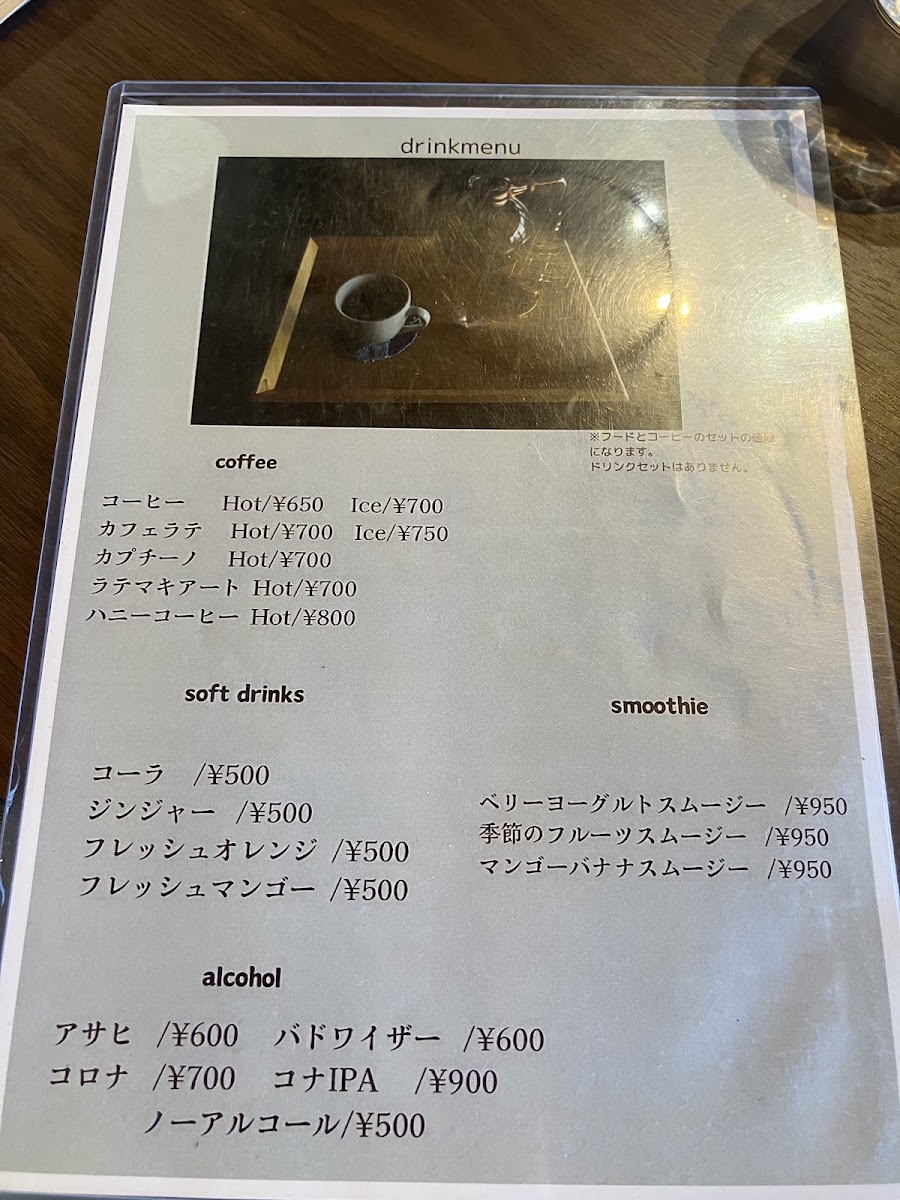 drinkmenu
※フードとコーヒーのセットの値段
になります。
ドリンクセットはありません。
coffee
コーヒー Hot/¥650 Ice/¥700
カフェラテ Hot/¥700 Ice/¥750
カプチーノ Hot/¥700
ラテマキアート Hot/¥700
ハニーコーヒー Hot/¥800
soft drinks
コーラ /¥500
ジンジャー /¥500
フレッシュオレンジ /¥500
フレッシュマンゴー /¥500
smoothie
ベリーヨーグルトスムージー /¥950
季節のフルーツスムージー /¥950
マンゴーバナナスムージー /¥950
alcohol
アサヒ /¥600 バドワイザー /¥600
コロナ /¥700 コナIPA /¥900
ノーアルコール/¥500